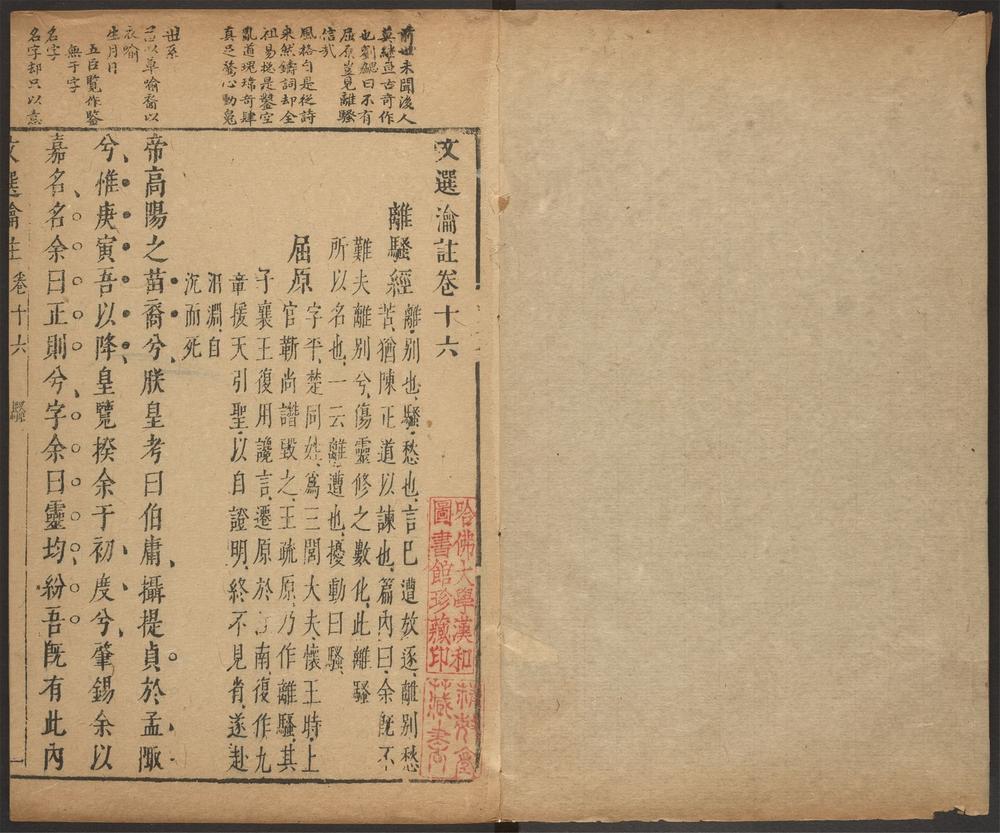 前世未聞後人
莫繼亘古奇作
也劉勰曰不有
屈原豈見離騷
信哉
風格自是從詩
來然鑄詞却全
祖易挺是鑿空
亂道瑰瑋奇肆
真足驚心動鬼
世系
五臣覽作鑒
無于字
名字
名字却只以意
文選瀹註卷十六
離騷經
離別也騷愁也言已遭放逐離別愁
苦猶陳正道以諫也篇內曰余旣不
難夫離別兮傷靈修之數化此離騷
所以名也一云離遭也擾動曰騷
屈原
字平楚同姓爲三閭大夫懷王時上
官靳尚譖毀之王疏原乃作離騷其
子襄王復用讒言遷原於江南復作九
章援天引聖以自證明終不見省遂赴
汨淵自
沉而死
帝高陽之苗裔兮朕皇考曰伯庸攝提貞於孟陬
兮惟庚寅吾以降皇覽揆余于初度兮肇錫余以
嘉名名余曰正則兮字余曰靈均紛吾旣有此內
文選瀹註
卷十六
騷
一
哈佛大學漢和
圖書館珍藏印
藏書